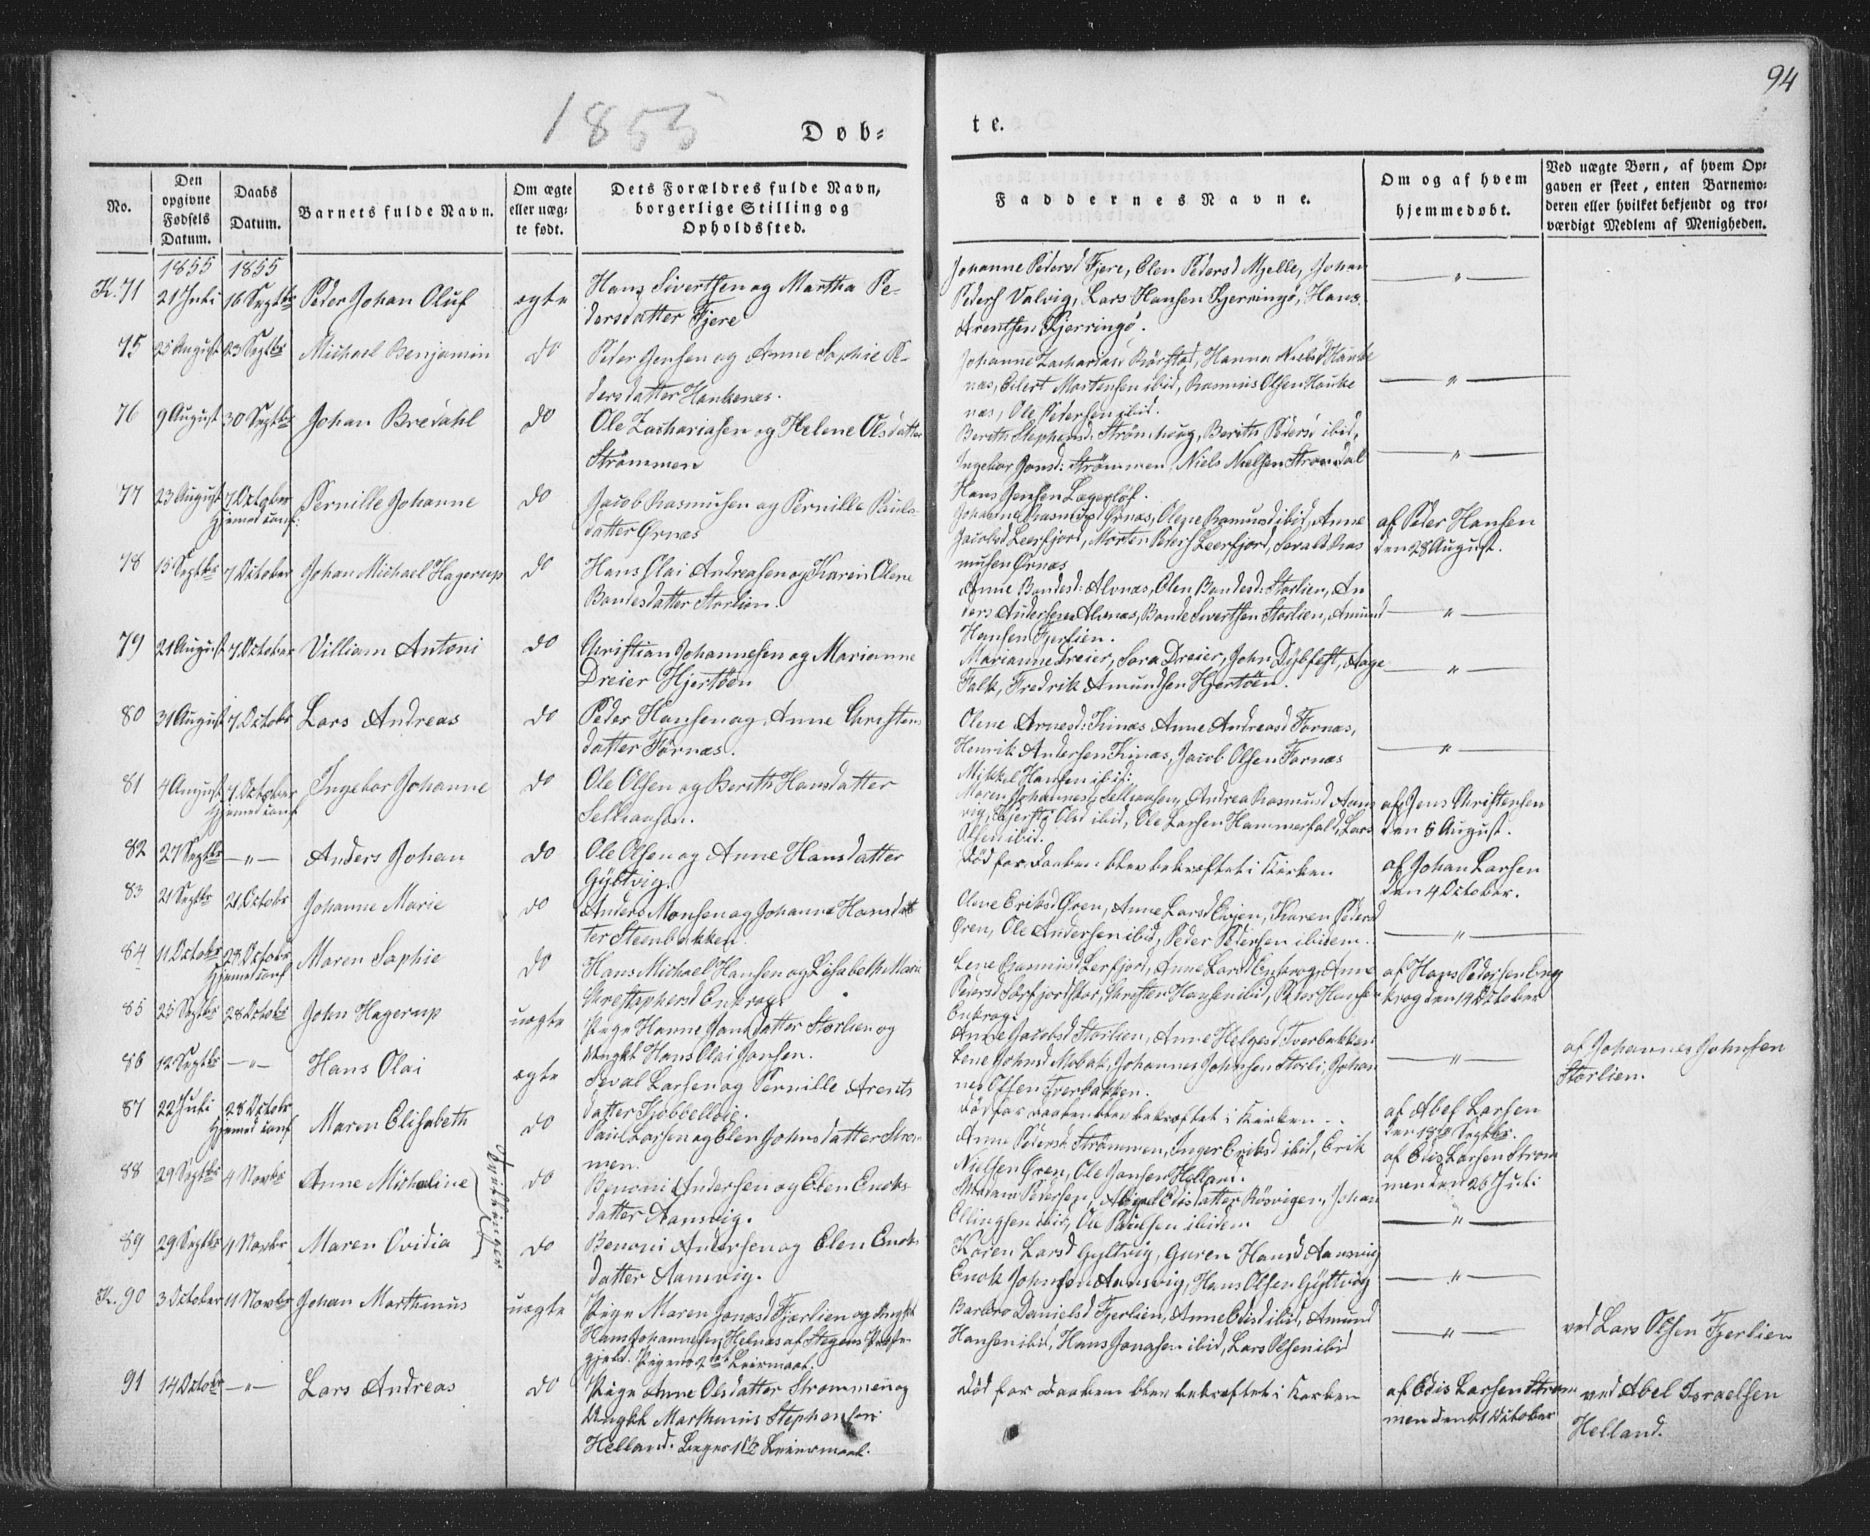 94
1855
Døb-
te.
No.
Den opgivne Fødsels Datum.
Daabs Datum.
Barnets fulde Navn.
Om ægte eller uægte født.
Dets Forældres fulde Navn, borgerlige Stilling og Opholdssted.
Faddernes Navne.
Om og af hvem hjemmedøbt.
Ved uægte Børn, af hvem Opgaven er skeet, enten Barnemoderen eller hvilket bekjendt og troværdigt Medlem af Menigheden.
1855 1855
K. 71 21 Juli 16 Septbr Peder Johan Oluf ægte Hans Sivertsen og Martha Pe-
dersdatter Fjere
Johanne Pedersd Fjere, Elen Pedersd Mjelle, Johan
Peders Valvig, Lars Hansen Kjerringø, Hans
Arentsen Kjerringø.
75 25 August 23 Septbr Michael Benjamin do Peder Jensen og Anne Sophie Pe-
dersdatter Haukenæs.
Johanne Zachariasd Rørstad, Hanna Nielsd Hauke
næs, Edert Mortensen ibid, Rasmus Olsen Hauke
næs, Ole Pedersen ibid.
76 9 August 30 Septbr Johan Bredahl do Ole Zachariasen og Helene Olsdatter
Strømmen
Berith Stephensd: Strømhoug, Berith Pedersd ibid,
Ingebor Jonsd: Strømmen, Niels Nielsen Strømdal
Hans Jensen Lægerløf.
77 23 August 7 October Pernille Johanne do Jacob Rasmusen og Pernille Pauls-
Hjemmed conf:
datter Ørnæs
Johanne Rasmusd Ørnæs, Olene Rasmusd ibid, Anne
Jacobsd Leerfjord, Morten Peders Leerfjord, Sevald Ras
musen Ørnæs
af Peder Hansen
den 28 August.
78 15 Septbr 7 October Johan Michael Hagerup do Hans Olai Andreasen og Karen Olene
Bondesdatter Storlien.
Anne Bondesd: Alvnæs, Elen Bondesd: Storlien, An
ders Andersen Alvnæs, Bonde Sivertsen Storlien, Amund
Hansen Fjerlien.
79 21 August 7 October Villiam Antoni do Christian Johannesen og Marianne
Dreier Hjertøen
Marianne Dreier, Sara Dreier, John Dybfest, Aage
Falk, Fredrik Amundsen Hjertøen.
80 31 August 7 Octobr Lars Andreas do Peder Hansen og Anne Christens
datter Fornæs.
Olene Arnesd: Kinæs, Anne Andreasd Fornæs,
Henrik Andersen Kinæs, Jacob Olsen Fornæs
Mikkel Hansen ibid:
81 4 August 7 October Ingebor Johanne do Ole Olsen og Berith Hansdatter
Hjemmed conf
Selhausen.
Maren Johannesd Selhausen, Andrea Rasmusd Aans
vig, Kjersti Olsd ibid, Ole Larsen Hammerfald, Lars
Olsen ibid.
af Jens Christensen
den 5 August.
82 27 Septbr —"— Anders Johan do Ole Olsen og Anne Hansdatter
Gyltvig.
Død før Daaben blev bekræftet i Kirken
af Johan Larsen
den 4 October.
83 21 Septbr 21 Octobr Johanne Marie do Anders Monsen og Johanna Hansdat
ter Steenbakken.
Olene Eriksd Øren, Anne Larsd Evjen, Karen Pedersd
Øren, Ole Andersen ibid, Peder Pedersen ibidem.
84 11 Octobr 28 Octobr Maren Sophie do Hans Michael Hansen og Elisabeth Marie
Hjemmed conf
Christophersd Enkrog
Lene Rasmusd Lerfjord, Anne Larsd Enkrog, Anne
Pedersd Sørfjordskar, Christen Hansen ibid, Peter Hansen
Enkrog.
af Hans Pedersen Eng
krog den 14 October
85 25 Septbr 28 Octobr John Hagerup uægte Pige Hanne Jonsdatter Storlien og
Ungkl Hans Olai Jonsen.
Anne Jacobsd Storlien, Anne Helgesd Tverbakken
Lene Johnsd Mobak, Johannes Johnsen Storli, Johan
nes Olsen Tverbakken.
af Johannes Johnsen
Storlien.
86 12 Septbr —"— Hans Olai ægte Sival Larsen og Pernille Arents
datter Kobbelveie.
Død før Daaben blev bekræftet i Kirken
af Abel Larsen
den 18de Septbr.
87 22 Juli 28 Octobr Maren Elisabeth do Paul Larsen og Elen Johnsdatter Strøm-
Hjemmed conf
men.
Anne Pedersd Strømmen, Inger Eriksd ibid, Erik
Nielsen Øren, Ole Jonsen Helland.
af Edis Larsen Strøm
men den 26 Juli
88 29 Septbr 4 Novbr Anne Michaline do Benoni Andersen og Elen Enoks
datter Aansvig.
Madam Petersen, Abigael Elisdatter Røsvigen, Johan
Ellingsen ibid, Ole Paulsen ibidem
Tvillinger
89 29 Septbr 4 Novbr Maren Ovidia do Benoni Andersen og Elen Enoks
datter Aansvig.
Karen Larsd Gyltvig, Guren Hansd Aansvig
Enok Johnsen Aansvig, Hans Olsen Gyltvig
K. 90 3 October 11 Novbr Johan Marthinus uægte Pige Maren Jonasd Fjerlien og Ungkl
Hans Johannesen Helnæs af Stegens Præste-
gjeld. Pigens 2det Leiermaal.
Barbro Danielsd Fjerlien, Anne Elisd ibid, Amund
Hansen ibid, Hans Jonasen ibid, Lars Olsen ibid
ved Lars Olsen Fjerlien
91 14 Octobr —"— Lars Andreas do Pige Anne Olsdatter Strømmen og
Ungkl Marthinus Stephensen
Helland. Begges 1ste Leiermaal.
Død før Daaben blev bekræftet i Kirken
af Edis Larsen Strøm
men den 21 October
ved Abel Israelsen
Helland.